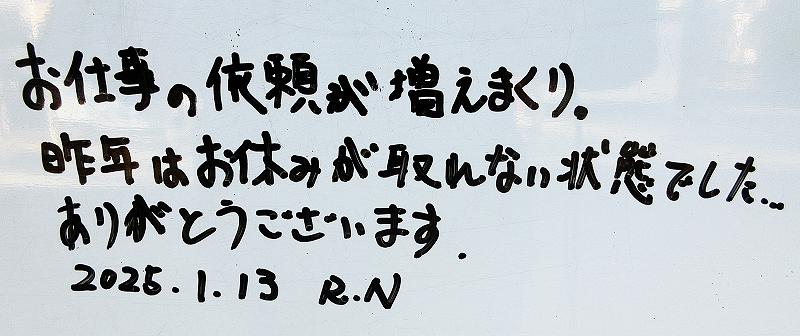 お仕事の依頼が増えまくり。
昨年はお休みが取れない状態でした...
ありがとうございます.
2025.1.13 R.N